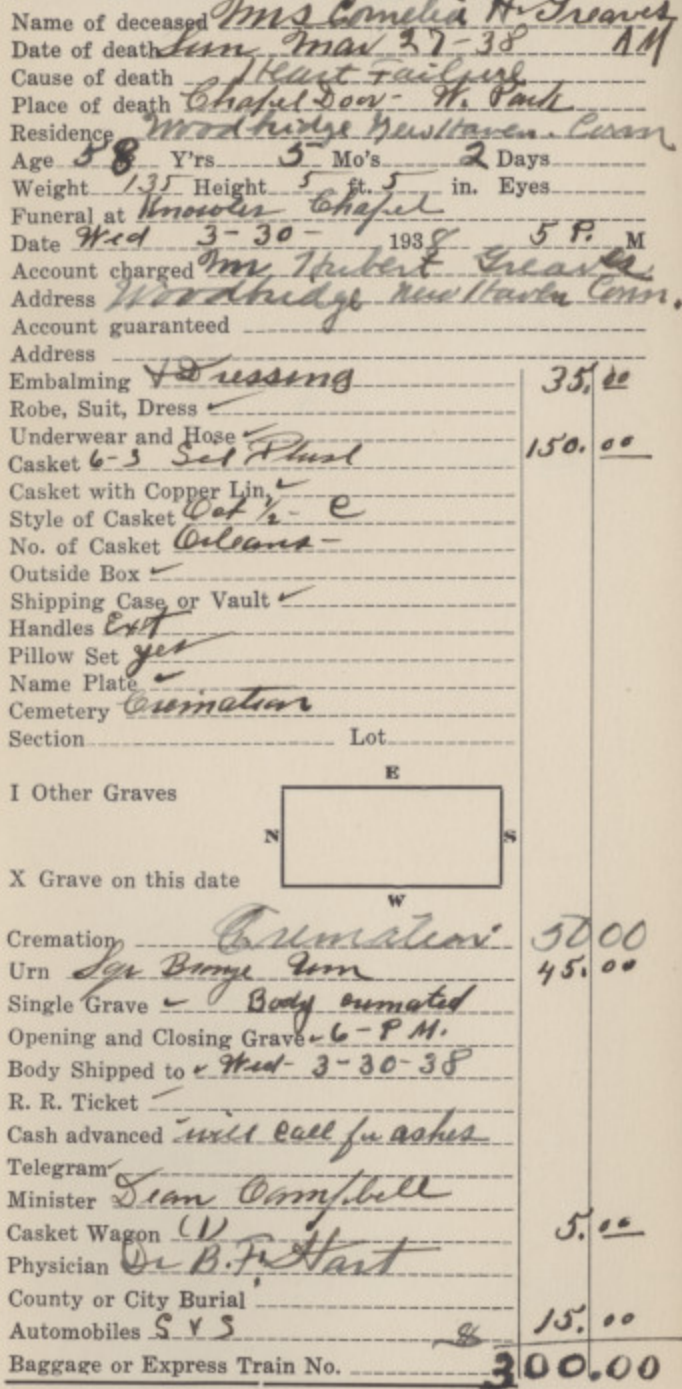 Name of deceased Mrs Cornelia H. Greaves
Date of death Sun Mar 27-38 AM
Cause of death Heart Failure
Place of death Chapel Door - W. Park
Residence Woodbridge New Haven. Conn
Age 58 Y'rs 5 Mo's 2 Days
Weight 135 Height 5 ft. 5 in. Eyes
Funeral at Knowles Chapel
Date Wed 3-30- 1938 5 P. M
Account charged Mr Hubert Greaves
Address Woodbridge New Haven Conn.
Account guaranteed
Address
Embalming & Dressing 35.00
Robe, Suit, Dress
Underwear and Hose
Casket 6-3 Sil Plush 150.00
Casket with Copper Lin.
Style of Casket Oct 1/2 - C
No. of Casket Orleans -
Outside Box
Shipping Case or Vault
Handles Ext
Pillow Set yes
Name Plate
Cemetery Cremation
Section Lot
E
I Other Graves
N S
X Grave on this date
W
Cremation Cremation 50 00
Urn Sqr Bronze Urn 45.00
Single Grave Body cremated
Opening and Closing Grave 6-P.M.
Body Shipped to Wed- 3-30-38
R. R. Ticket
Cash advanced will call for ashes
Telegram
Minister Dean Campbell
Casket Wagon (1) 5.00
Physician Dr B. F. Hart
County or City Burial
Automobiles S & S 15.00
Baggage or Express Train No. 300.00